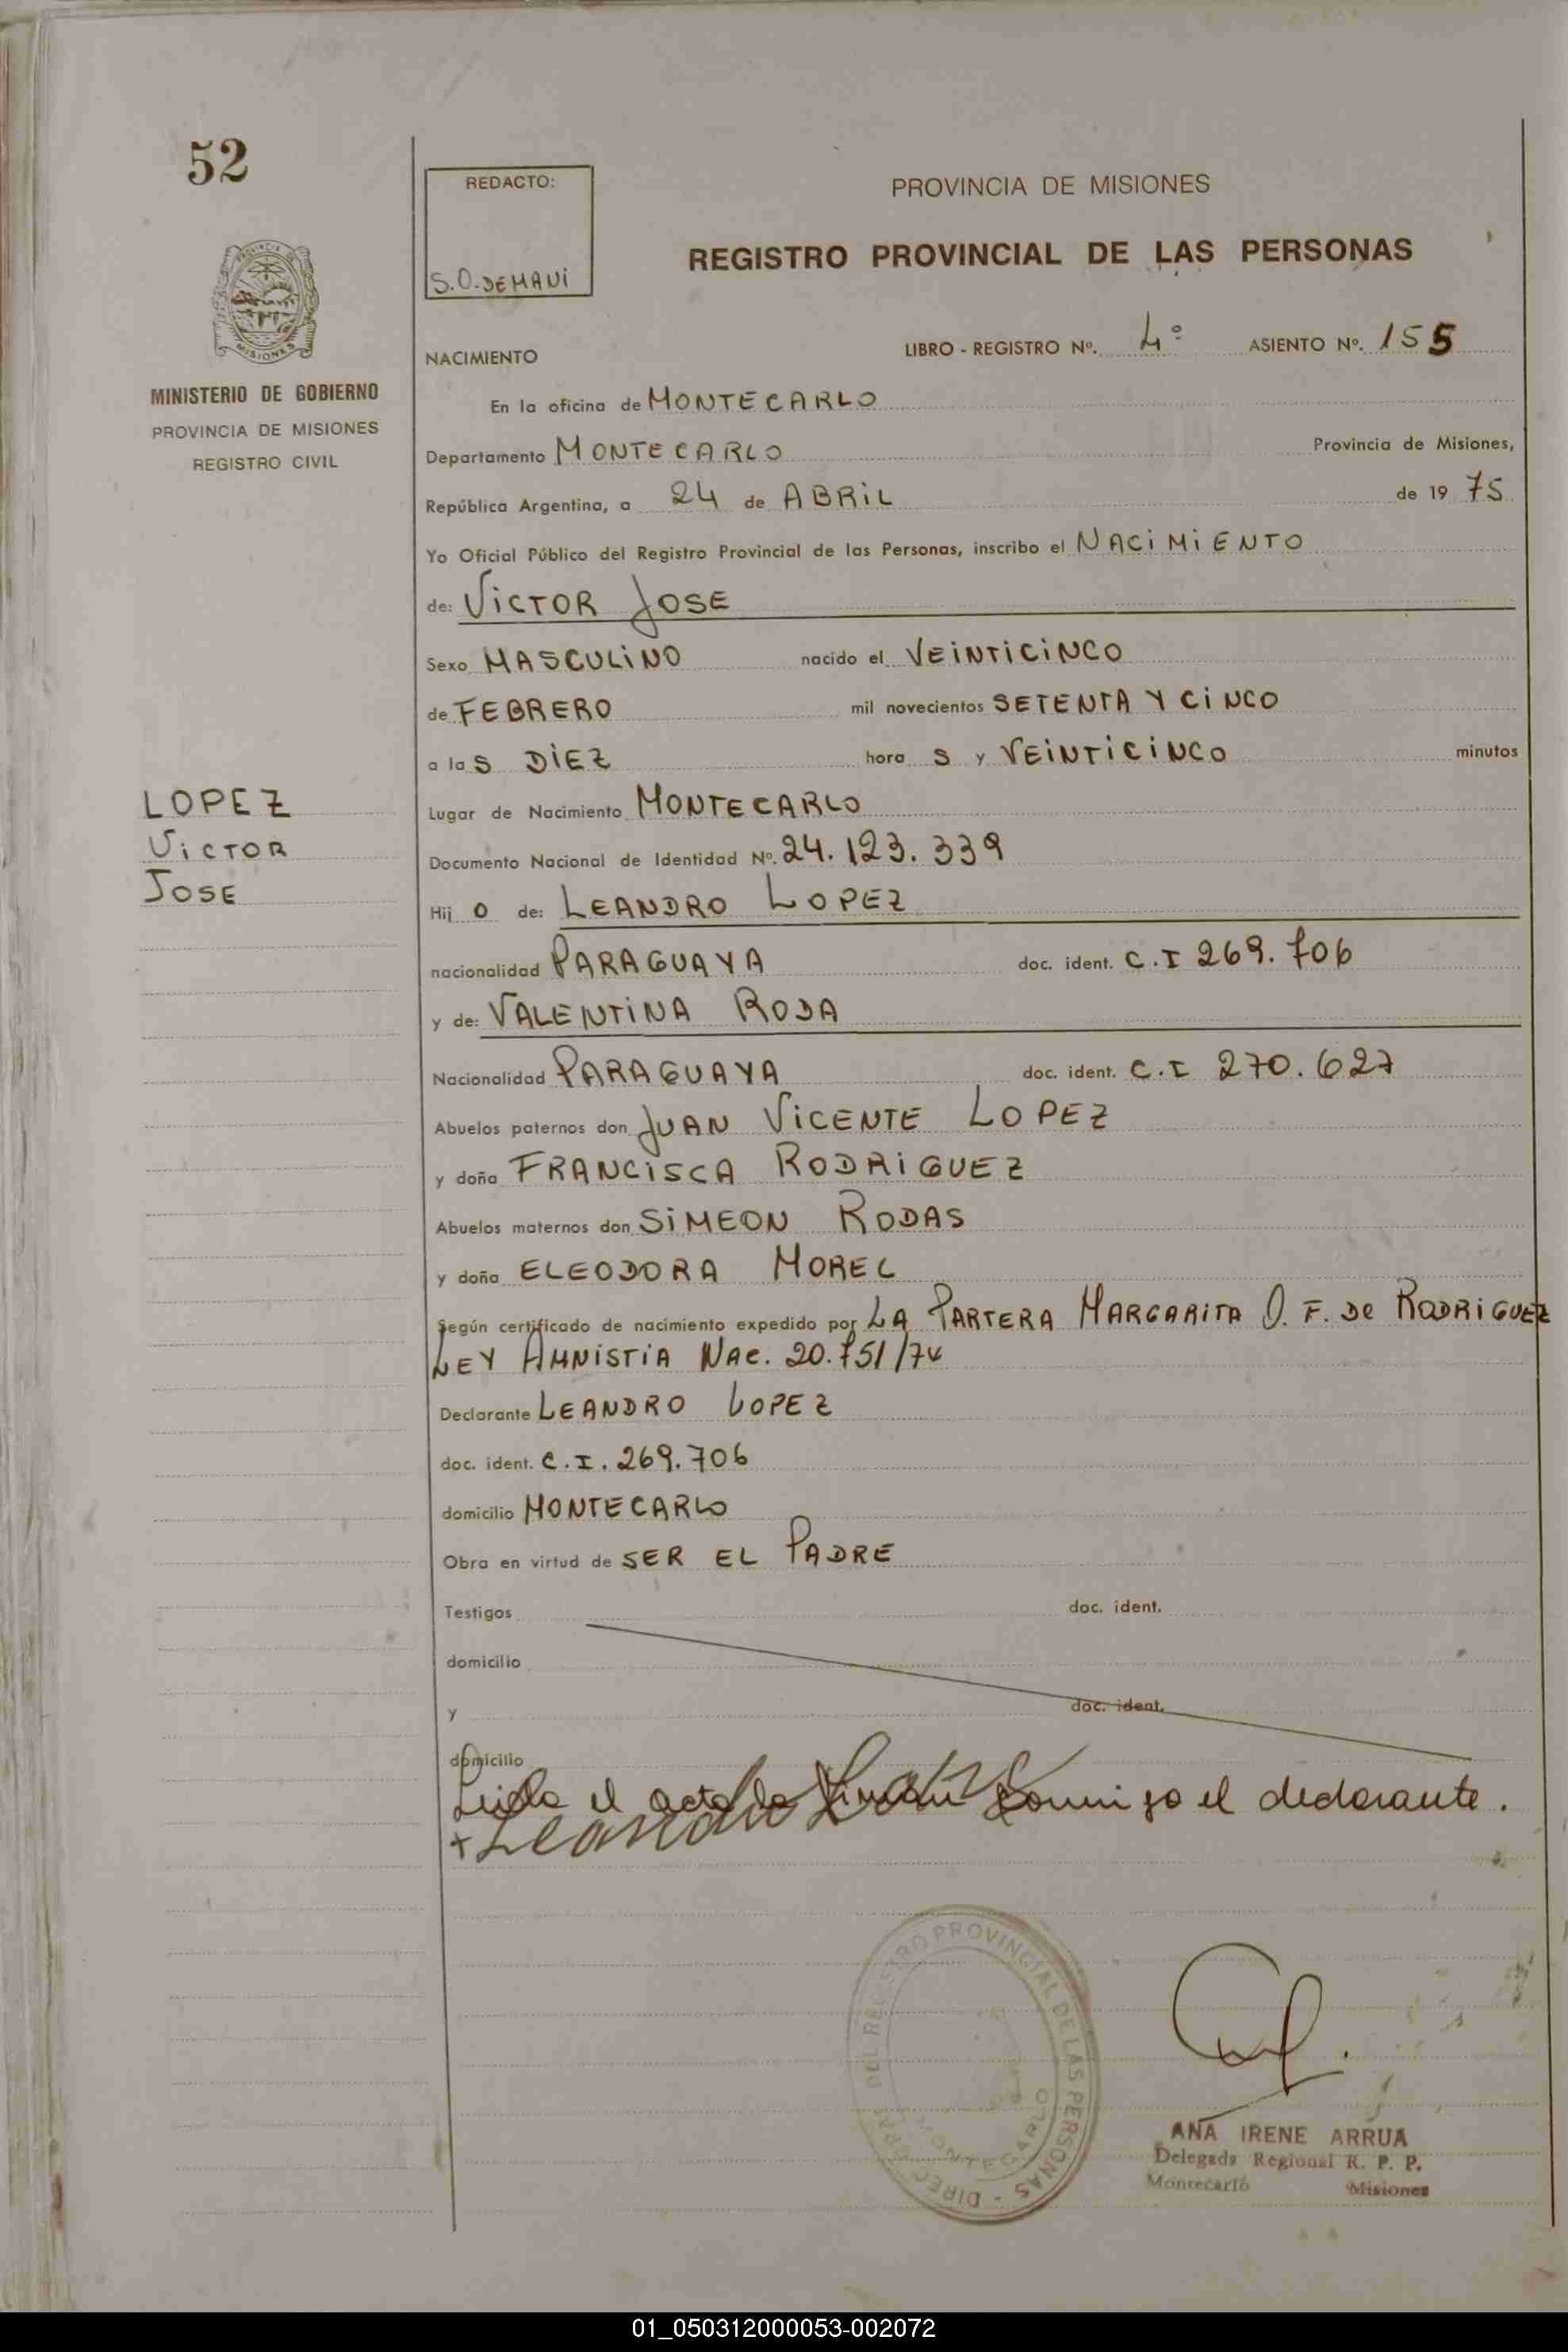 52
REDACTO:
S.O. DEMAVI
PROVINCIA DE MISIONES
REGISTRO PROVINCIAL DE LAS PERSONAS
MISIONES
MINISTERIO DE GOBIERNO
PROVINCIA DE MISIONES
REGISTRO CIVIL
NACIMIENTO LIBRO - REGISTRO Nº. 4º ASIENTO Nº. 155
En la oficina de MONTECARLO
Departamento MONTECARLO Provincia de Misiones,
República Argentina, a 24 de ABRIL de 19 75
Yo Oficial Público del Registro Provincial de las Personas, inscribo el NACIMIENTO
de: VICTOR JOSE
Sexo MASCULINO nacido el VEINTICINCO
de FEBRERO mil novecientos SETENTA Y CINCO
a las DIEZ hora s y VEINTICINCO minutos
LOPEZ
VICTOR
JOSE
Lugar de Nacimiento MONTECARLO
Documento Nacional de Identidad Nº. 24.123.339
Hij o de: LEANDRO LOPEZ
nacionalidad PARAGUAYA doc. ident. C.I 269.706
y de: VALENTINA RODA
Nacionalidad PARAGUAYA doc. ident. C.I 270.627
Abuelos paternos don JUAN VICENTE LOPEZ
y doña FRANCISCA RODRIGUEZ
Abuelos maternos don SIMEON RODAS
y doña ELEODORA MOREL
Según certificado de nacimiento expedido por LA PARTERA MARGARITA O. F. DE RODRIGUEZ
LEY AMNISTIA NAC. 20.751/74
Declarante LEANDRO LOPEZ
doc. ident. C.I. 269.706
domicilio MONTECARLO
Obra en virtud de SER EL PADRE
Testigos doc. ident.
domicilio
y doc. ident.
domicilio
Leida el acta la firman conmigo el declarante.
+ Leandro Lopez
DIRECCION GRAL DEL REGISTRO PROVINCIAL DE LAS PERSONAS -
MONTECARLO
ANA IRENE ARRUA
Delegada Regional R. P. P.
Montecarlo Misiones
01_050312000053-002072